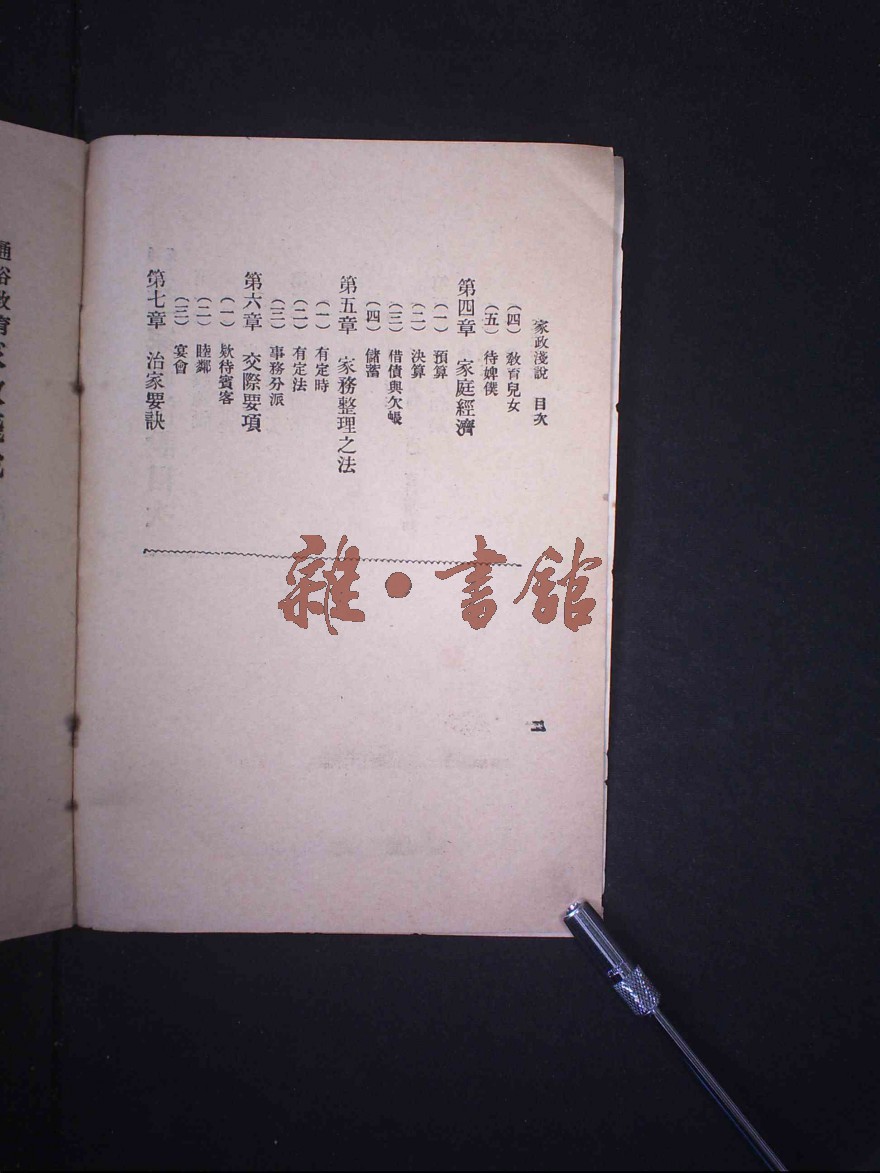 家政淺說　目次
（四）　敎育兒女
（五）　待婢僕
第四章　家庭經濟
（一）　預算
（二）　決算
（三）　借債與欠賬
（四）　儲蓄
第五章　家務整理之法
（一）　有定時
（二）　有定法
（三）　事務分派
第六章　交際要項
（一）　欵待賓客
（二）　睦鄰
（三）　宴會
第七章　治家要訣
雜·書館
通俗敎育家政淺說